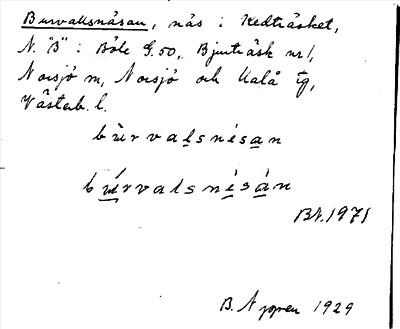 Burvallsnäsan, näs i Kedträsket,
N. "B" i Böle G.50, Bjurträsk nr 1,
Norsjö m, Norsjö och Malå tg,
Västerb. l.
bùrvalsnésan
búrvalsnésàn
BN. 1971
B. Nygren 1929